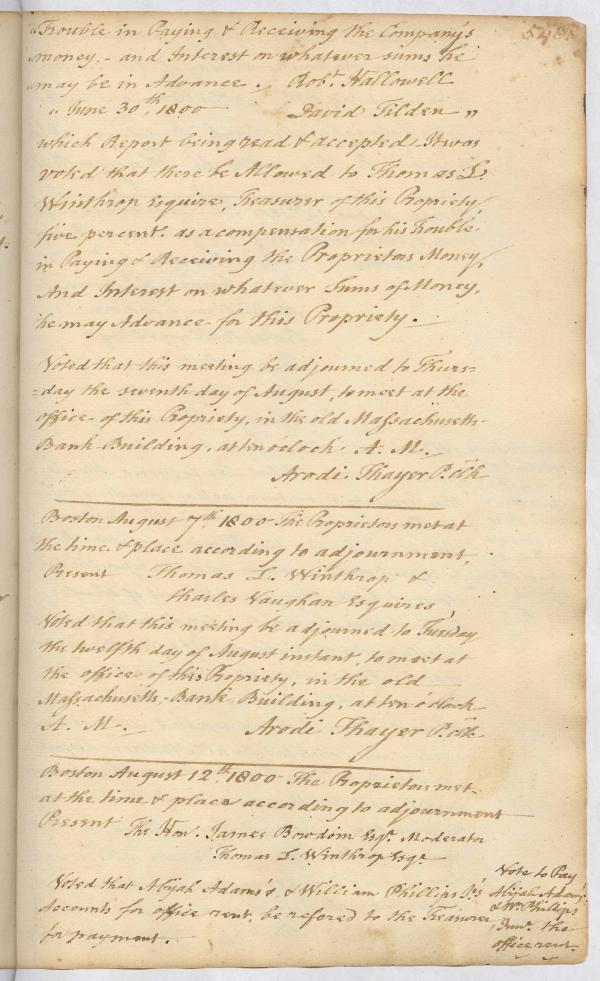 548.
"Trouble in Paying & Receiving the Company's
"money, - and Interest on whatever sums he
"may be in Advance. Robt. Hallowell
" June 30th. 1800 David Tilden "
which Report being read & accepted. It was
voted that there be Allowed to Thomas L.
Winthrop Esquire, Treasurer of this Propriety,
five percent. as a compensation for his Trouble.
in Paying & Receiving the Proprietors Money,
And Interest on whatever Sums of Money,
he may Advance for this Propriety.
Voted that this meeting be adjourned to Thurs=
=day the seventh day of August, to meet at the
office of this Propriety, in the old Massachusetts
Bank Building, at ten o'clock A. M.
Arodi Thayer P. Clk
Boston August 7th. 1800 The Proprietors met at
the time & place according to adjournment,
Present Thomas L. Winthrop &
Charles Vaughan Esquires,
Voted that this meeting be adjourned to Tuesday
the twelfth day of August instant, to meet at
the office of this Propriety, in the old
Massachusetts-Bank Building, at ten o'clock
A. M. Arodi Thayer P. Clk
Boston August 12th. 1800 The Proprietors met
at the time & place according to adjournment
Present The Hon. James Bowdoin Esqr. Moderator
Thomas L. Winthrop Esqr.
Voted that Abijah Adams's & William Phillips Jr's
Accounts for office rent, be refered to the Treasurer
for payment.
Note to Pay
Abijah Adams
& Wm. Phillips
Junr. the
office rent.